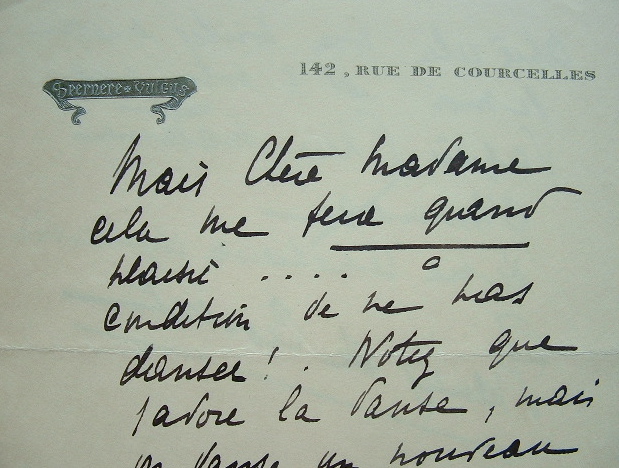 142, RUE DE COURCELLES
Spernere * Vulgus
Mais Chère Madame
cela me fera grand
plaisir .... à
condition de ne pas
danser ! . Notez que
j'adore la danse, mais
je danse un nouveau